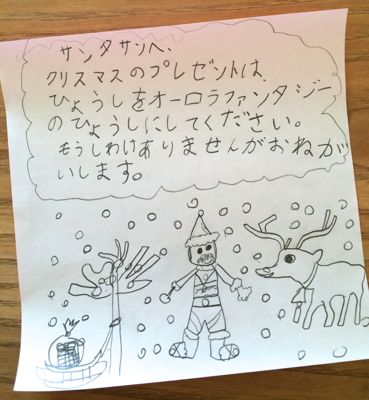 サンタサンへ、
クリスマスのプレゼントは、
ひょうしをオーロラファンタジー
のひょうしにしてください。
もうしわけありませんがおねが
いします。